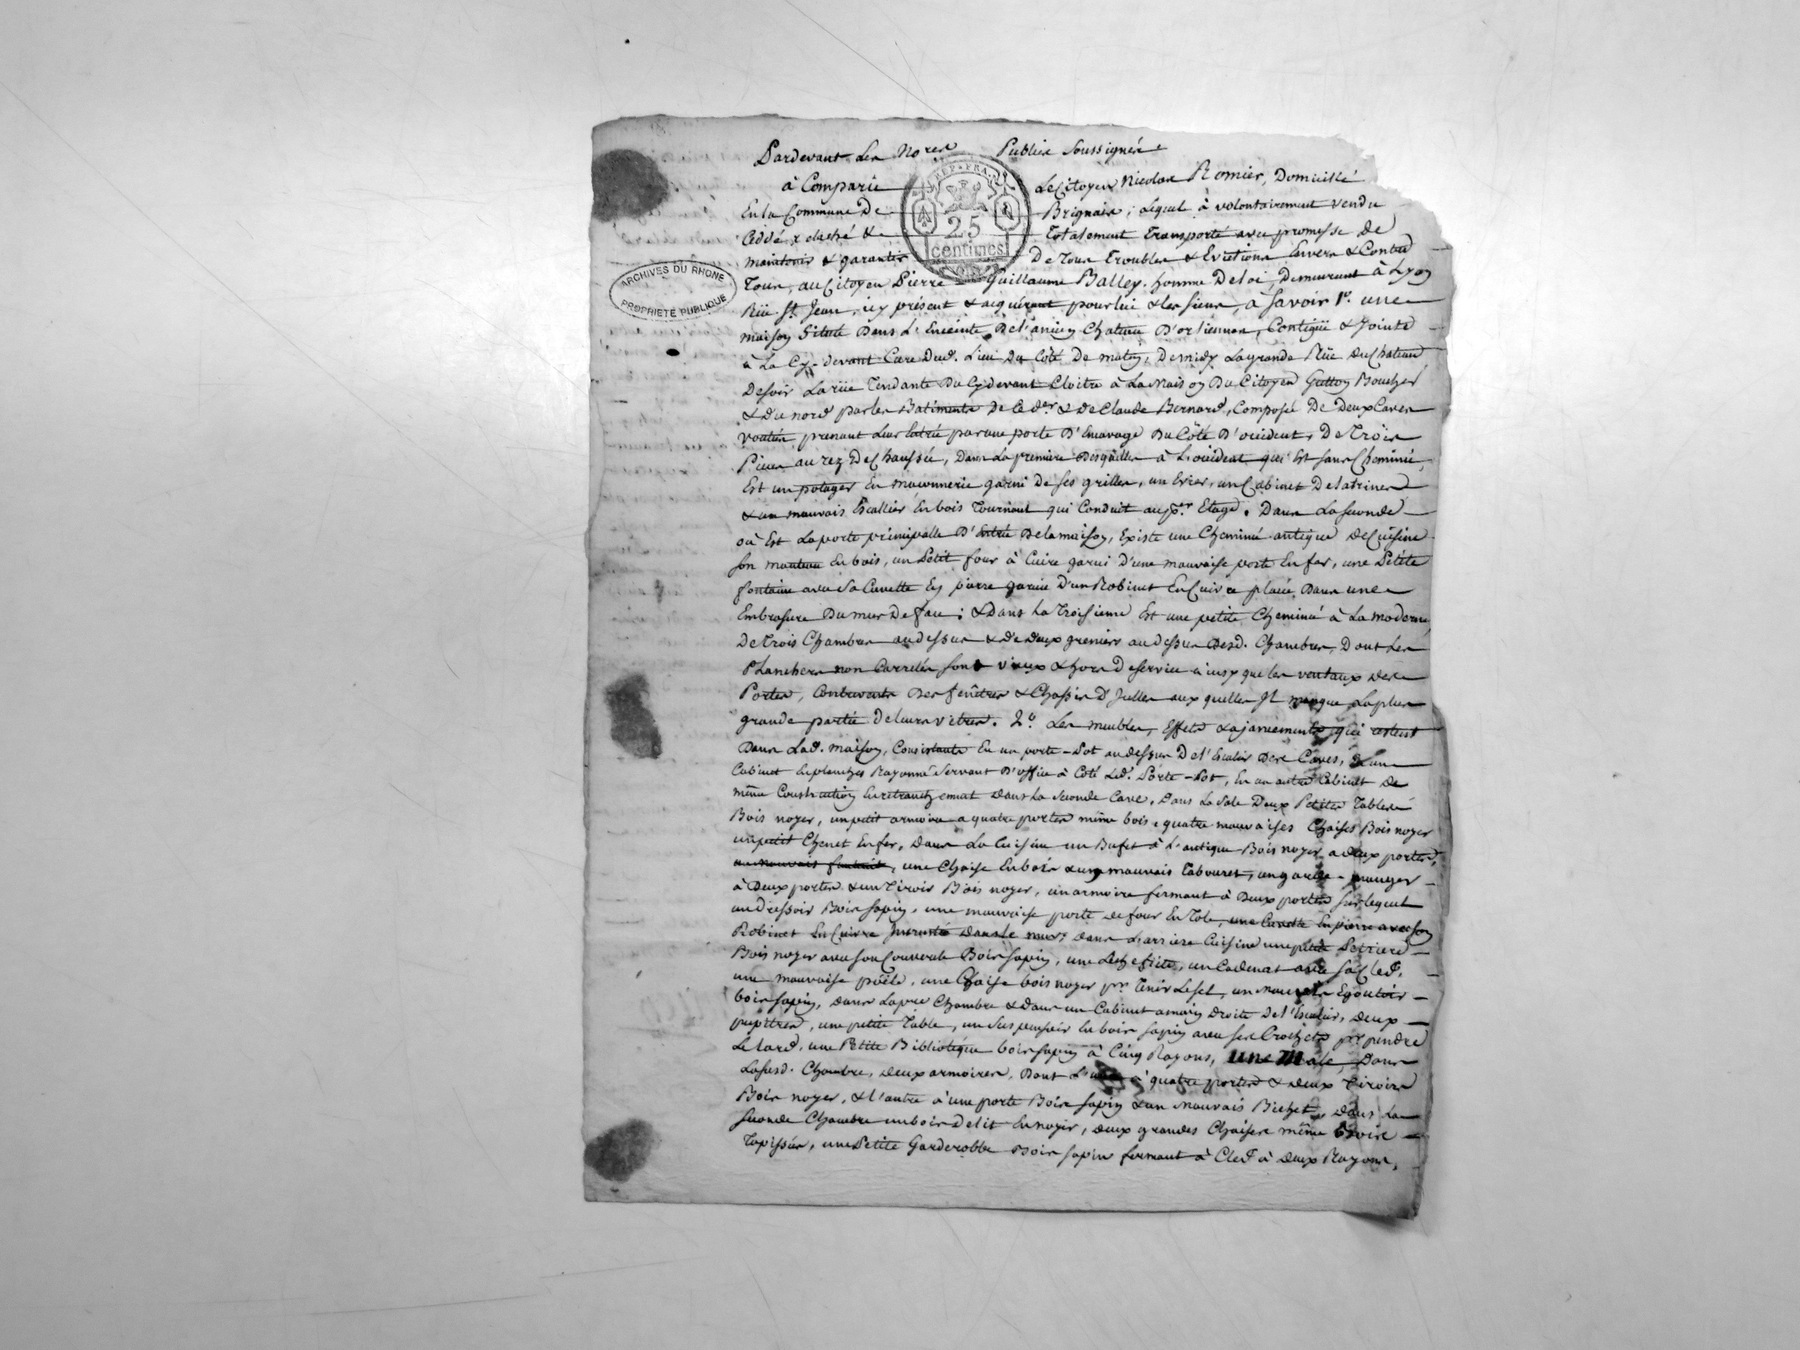 Pardevant Les No.res Publics Soussignés
à Comparu Le Citoyen Nicolas Romier, Domicilié
En la Commune De Brignais, Lequel à volontairement vendu
Cédé, relaché & Totalement Transporté avec promesse De
maintenir & garantir De Tous Troubles & Evictions Envers & Contre
Tous, au Citoyen Pierre Guillaume Balley, homme De loi, Demeurant à Lyon
Rüe St Jean, icy présent & acquérant pour lui & les siens, a Savoir 1º. une
maison Située Dans L'Enceinte De l'ancien Chateau D'orliennas, Contigüe & Jointe
à La Cy-devant Cure Dud. Lieu Du Coté De matin, De midy La grande Rüe du Chateau
De soir La rüe Tendante Du Cydevant Cloitre à La Maison Du Citoyen Guttoy Boucher
& Du nord par les Batiments De Ce d.er & De Claude Bernard, Composée De Deux Caves
voutées prenant Leur Entrée par une porte D'Encavage Du Côté D'occident, De Trois
Pieces au rez De Chaussée, Dans La premiere Desquelles à L'occident qui Est sans Cheminée,
Est un potager En maconnerie garni De ses grilles, un Evier, un Cabinet De latrines
& un mauvais Escallier En bois Tournant qui Conduit au p.er Etage, Dans La seconde
où Est La porte principalle D'Entrée De la maison, Existe une Cheminée antique De Cuisine
son manteau En bois, un Petit four à Cuire garni D'une mauvaise porte En fer, une Petite
fontaine avec Sa Cuvette En pierre garnie D'un Robinet En Cuivre placée Dans une
Embrasure Du mur De face ; & Dans La Troisieme Est une petite Cheminée à La moderne,
De Trois Chambres audessus & De Deux greniers audessus Desd. Chambres, Dont Les
Planchers non Carrelés sont vieux & hors De service ainsy que les ventaux Des
Portes, Contrevents Des fenêtres & Chassis D'Icelles aux quelles Il manque La plus
grande partie De leurs vitres. 2º. Les meubles, Effets & ajancements qui restent
Dans Lad. maison, Consistants En un porte-Pot audessus De l'Escalier Des Caves, & un
Cabinet En planches Rayonné Servant D'office à Coté Led. Porte-Pot, En un autre Cabinet De
même Construction En retranchement Dans La Seconde Cave, Dans La Sale Deux Petites Tables
Bois noyer, un petit armoire a quatre portes même bois, quatre mauvaises Chaises Bois noyer
un petit Chenet En fer, Dans La Cuisine un Bufet à L'antique Bois noyer a Deux portes,
un mauvais fauteuil, une Chaise En bois & un mauvais Tabouret, un garde-manger
à Deux portes & un Tiroir Bois noyer, un armoire fermant à Deux portes sur lequel
un Dressoir Bois sapin, une mauvaise porte De four En Tole, une Cuvette En pierre avec son
Robinet En Cuivre Incrusté Dans Le mur, Dans L'arriere Cuisine une petite Petriere
Bois noyer avec son Couvercle Bois sapin, une Lechefrite, un Cadenat avec sa Clef,
une mauvaise poële, une Chaise bois noyer pr Tenir Le sel, un mauvais Egoutoir
bois sapin, Dans La p.re Chambre & Dans un Cabinet a main Droite De l'Escalier, Deux
pupitres, une petite Table, un Suspensoir En bois sapin avec ses Crochets pr pendre
Le lard, une Petite Bibliotéque bois sapin à Cinq Rayons, une Male, Dans
La susd. Chambre, Deux armoires, Dont L'une à quatre portes & Deux Tiroirs
Bois noyer, & l'autre à une porte Bois sapin & un Mauvais Bichet, Dans La
seconde Chambre un bois De lit En noyer, Deux grandes Chaises même Bois
Tapissées, une Petite Garderobbe Bois sapin fermant à Clef à Deux Rayons,
REP. FRA.
25
centimes
ARCHIVES DU RHONE
PROPRIETE PUBLIQUE